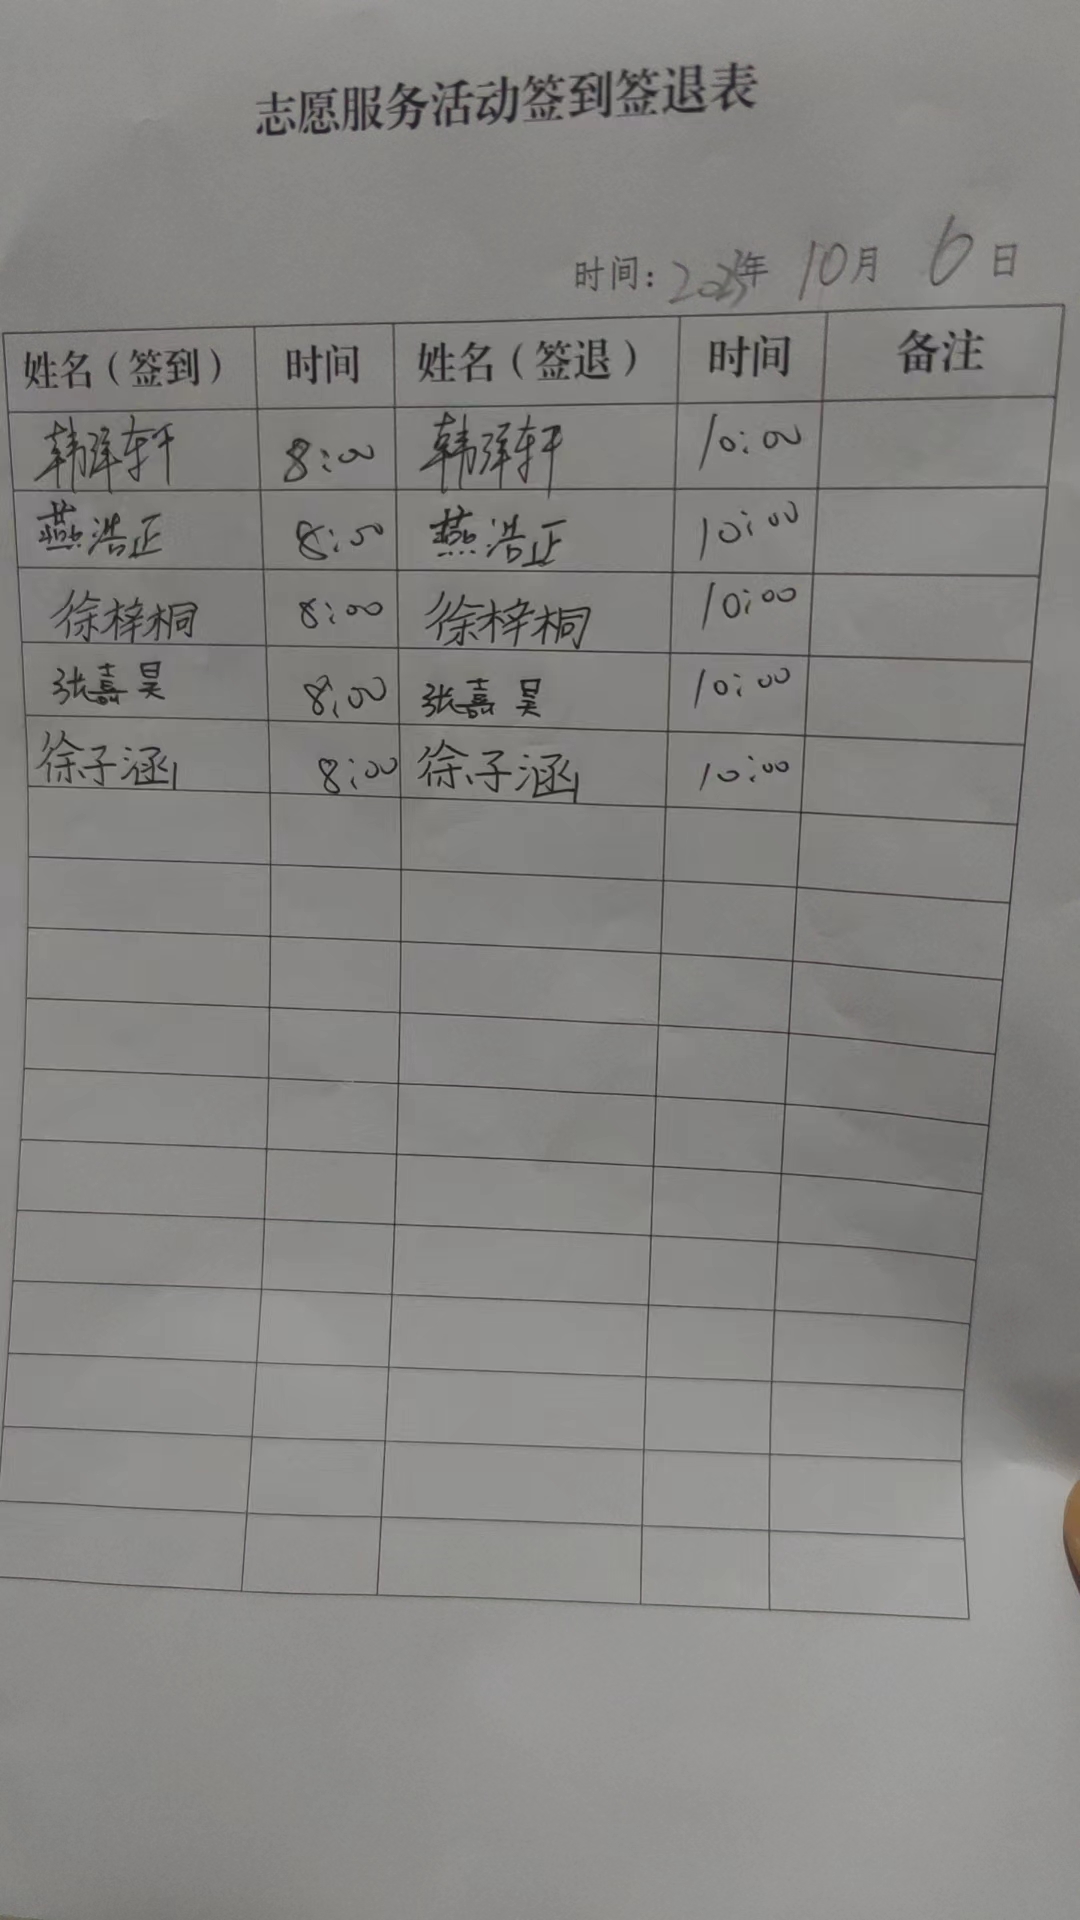 志愿服务活动签到签退表
时间：2023年 10月 6日
姓名（签到） 时间 姓名（签退） 时间 备注
韩泽轩 8:00 韩泽轩 10:00
燕浩正 8:00 燕浩正 10:00
徐梓桐 8:00 徐梓桐 10:00
张嘉昊 8:00 张嘉昊 10:00
徐子涵 8:00 徐子涵 10:00